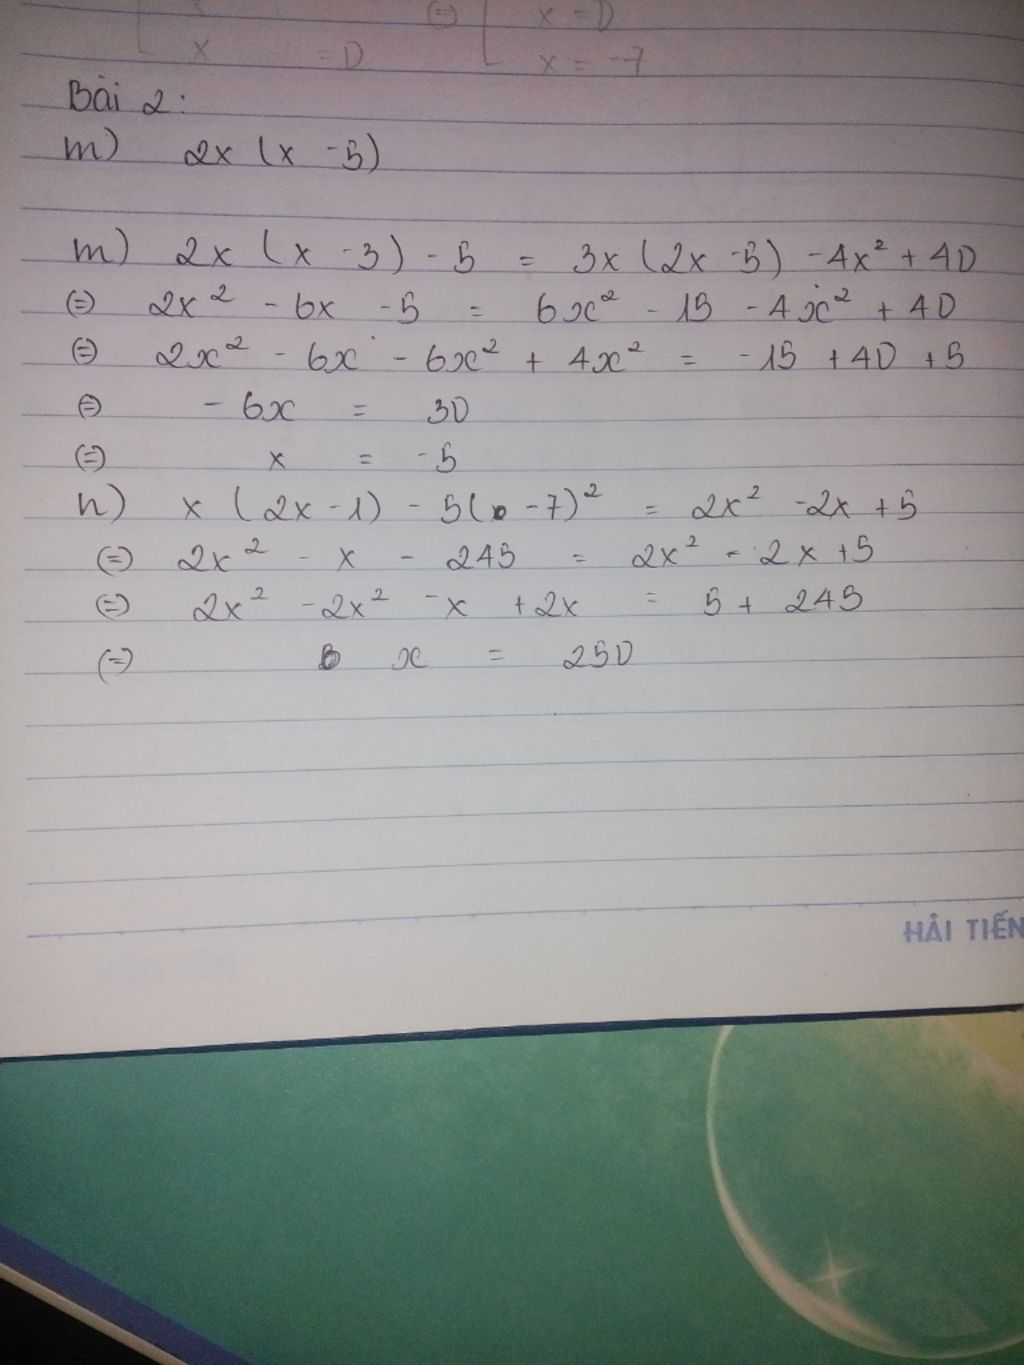 (=) x = 0
x = 0 x = -7
Bài 2:
m) 2x (x - 5)
m) 2x (x - 3) - 5 = 3x (2x - 5) - 4x² + 40
(=) 2x² - 6x - 5 = 6x² - 15 - 4x² + 40
(=) 2x² - 6x - 6x² + 4x² = -15 + 40 + 5
(=) - 6x = 30
(=) x = -5
n) x (2x - 1) - 5( -7)² = 2x² - 2x + 5
(=) 2x² - x - 245 = 2x² - 2x + 5
(=) 2x² - 2x² - x + 2x = 5 + 245
(=) x = 250
HẢI TIẾN